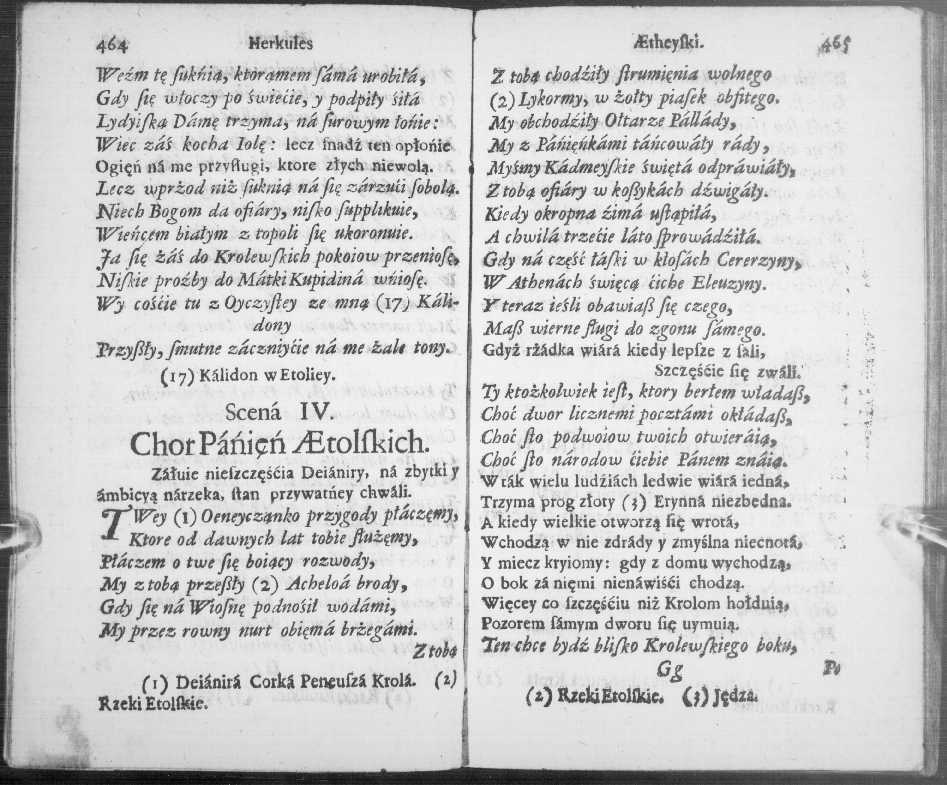 464 Herkules
Weźm tę ſuknią, ktorąmem ſámá urobiłá,
Gdy ſię włoczy po świećie, y podpiły śiłá
Lydyiſką Dámę trzyma, ná ſurowym łońie:
Wiec záś kocha Iolę: lecz ſnadź ten opłonie
Ogięń ná me przyſługi, ktore złych niewolą.
Lecz wprżod niż ſuknią ná ſię zárzuii ſobolą.
Niech Bogom da ofiáry, niſko ſupplikuie,
Wieńcem białym z topoli ſię ukoronuie.
Ja ſię żáś do Krolewſkich pokoiow przenioſę,
Niſkie proźby do Mátki Kupidiná wńioſę.
Wy cośćie tu z Oyczyſtey ze mną (17) Káli-
dony
Przyſßły, ſmutne záczniyćie ná me żale tony.
(17) Kálidon w Etoliey.
Scená IV.
Chor Páńięń Ætolſkich.
Záłuie nieſzczęśćia Deiániry, ná zbytki y
ámbicyą nárzeka, ſtan przywatńey chwáli.
TWey (1) Oeneyczanko przygody płáczęmy,
Ktore od dawnych lat tobie ſłużęmy,
Płáczem o twe ſię boiący rozwody,
My z tobą przeſßły (2) Acheloá brody,
Gdy ſię ná Wioſnę podnośił wodámi,
My przez rowny nurt obięmá brżegámi.
Z tobą
(1) Deiánirá Corká Peneuſzá Krolá. (2)
Rzeki Etolſkie.
Ætheyſki. 465
Z tobą chodźiły ſtrumięnia wolnego
(2) Lykormy, w żołty piaſek obfitego.
My obchodźiły Ołtarze Pállády,
My z Páńięńkámi táńcowáły rády,
Myśmy Kádmeyſkie święta odpráwiáły,
Z tobą ofiáry w koßykách dźwigáły.
Kiedy okropna źimá uſtąpiłá,
A chwilá trzećie láto ſprowádźiłá.
Gdy ná część łáſki w kłoſách Cererzyny,
W Athenách święcą ćiche Eleuzyny.
Y teraz ieśli obawiaß ſię czego,
Maß wierne ſługi do zgonu ſámego.
Gdyż rżádka wiárá kiedy lepſze z ſali,
Szczęśćie ſię zwáli.
Ty ktożkolwiek ieſt, ktory berłem władaß,
Choć dwor licznemi pocztámi okłádaß,
Choć ſto podwoiow twoich otwieráią,
Choć ſto národow ćiebie Pánem znáią.
W ták wielu ludźiách ledwie wiárá iedná,
Trzyma prog złoty (3) Erynná niezbedna.
A kiedy wielkie otworzą ſię wrotá,
Wchodzą w nie zdrády y zmyślna niecnotá,
Y miecz kryiomy: gdy z domu wychodzą,
O bok zá nięmi nienáwiśći chodzą.
Więcey co ſzczęśćiu niż Krolom hołduią,
Pozorem ſámym dworu ſię uymuią.
Ten chce bydź bliſko Krolewſkiego boku,
Gg Po
(2) Rzeki Etolſkie. (3) Jędza.